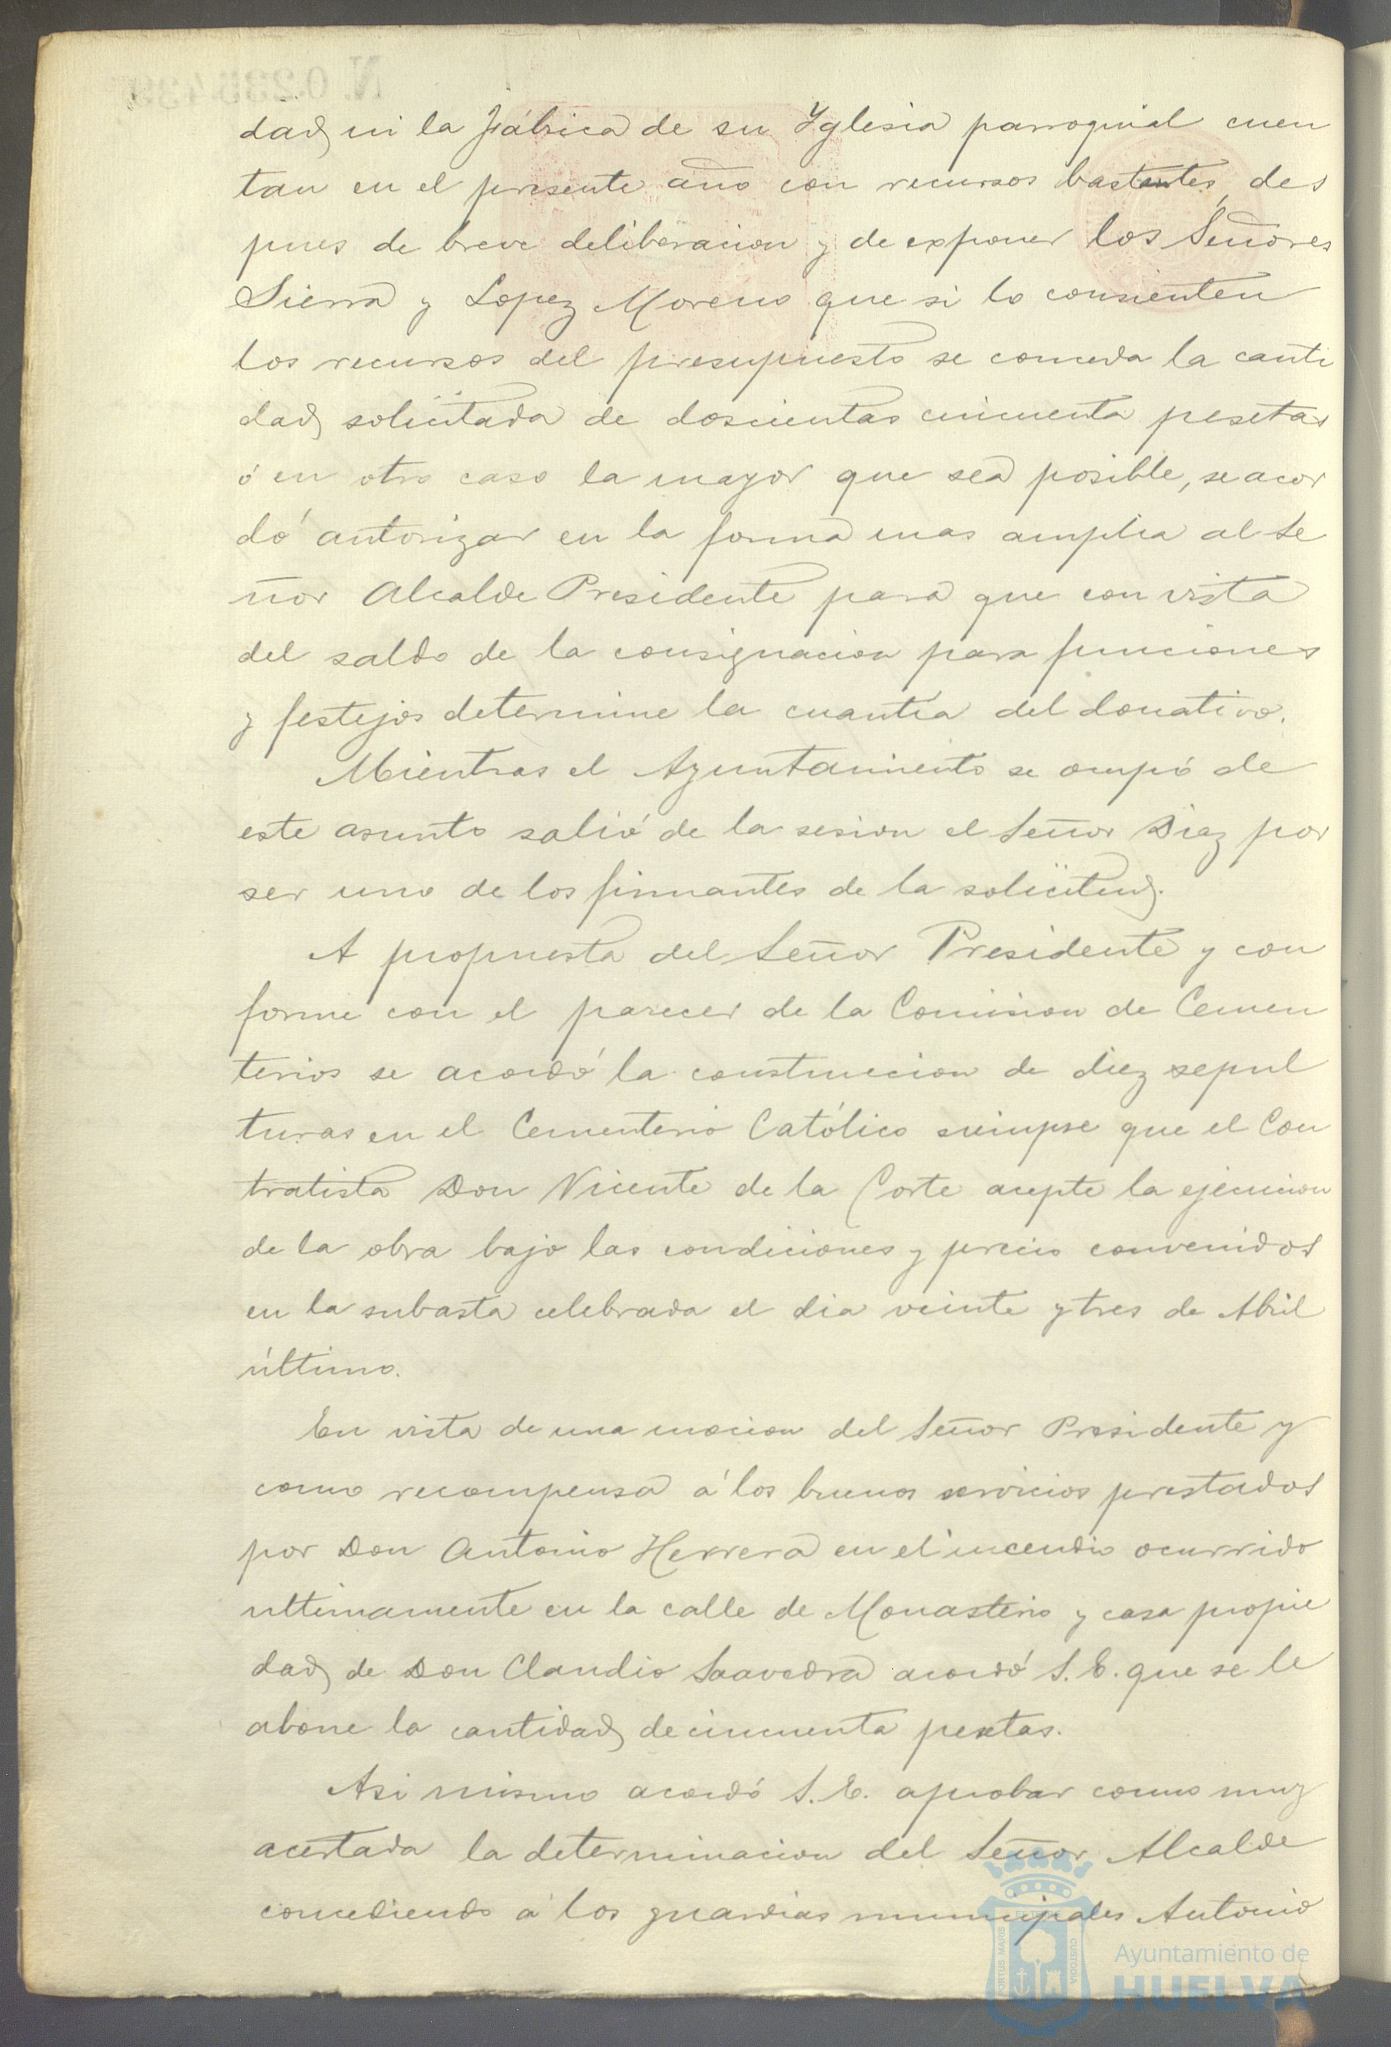 N. 0.238.439
dad ni la fábrica de su Yglesia parroquial cuen
tan en el presente año con recursos bastantes, des
pues de breve deliberacion y de exponer los Señores
Sierra y Lopez Moreno que si lo consienten
los recursos del presupuesto se conceda la canti
dad solicitada de doscientas cincuenta pesetas
ó en otro caso la mayor que sea posible, se acor
dó autorizar en la forma mas amplia al Se
ñor Alcalde Presidente para que con vista
del saldo de la consignacion para funciones
y festejos determine la cuantía del donativo.
Mientras el Ayuntamiento se ocupó de
este asunto salió de la sesion el Señor Diaz por
ser uno de los firmantes de la solicitud.
A propuesta del Señor Presidente y con
forme con el parecer de la Comision de Cemen
terios se acordó la construccion de diez sepul
turas en el Cementerio Católico siempre que el Con
tratista Don Vicente de la Corte acepte la ejecucion
de la obra bajo las condiciones y precio convenidos
en la subasta celebrada el dia veinte y tres de Abril
último.
En vista de una mocion del Señor Presidente y
como recompensa á los buenos servicios prestados
por Don Antonio Herrera en el incendio ocurrido
ultimamente en la calle de Monasterio y casa propie
dad de Don Claudio Saavedra acordó S. E. que se le
abone la cantidad de cincuenta pesetas.
Asi mismo acordó S. E. aprobar como muy
acertada la determinacion del Señor Alcalde
concediendo á los guardias municipales Antonio
PORTUS MARIS ET TERRAE CUSTODIA
Ayuntamiento de
HUELVA